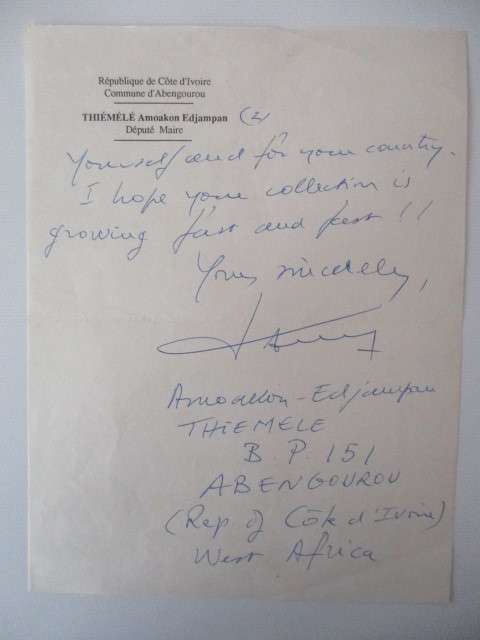 République de Côte d'Ivoire
Commune d'Abengourou
THIÉMÉLÉ Amoakon Edjampan
Député Maire
(2)
Yourself and for your country.
I hope your collection is
growing fast and fast !!
Yours sincerely,
Amoakon-Edjampan
THIEMELE
B.P. 151
ABENGOUROU
(Rep of Côte d'Ivoire)
West Africa